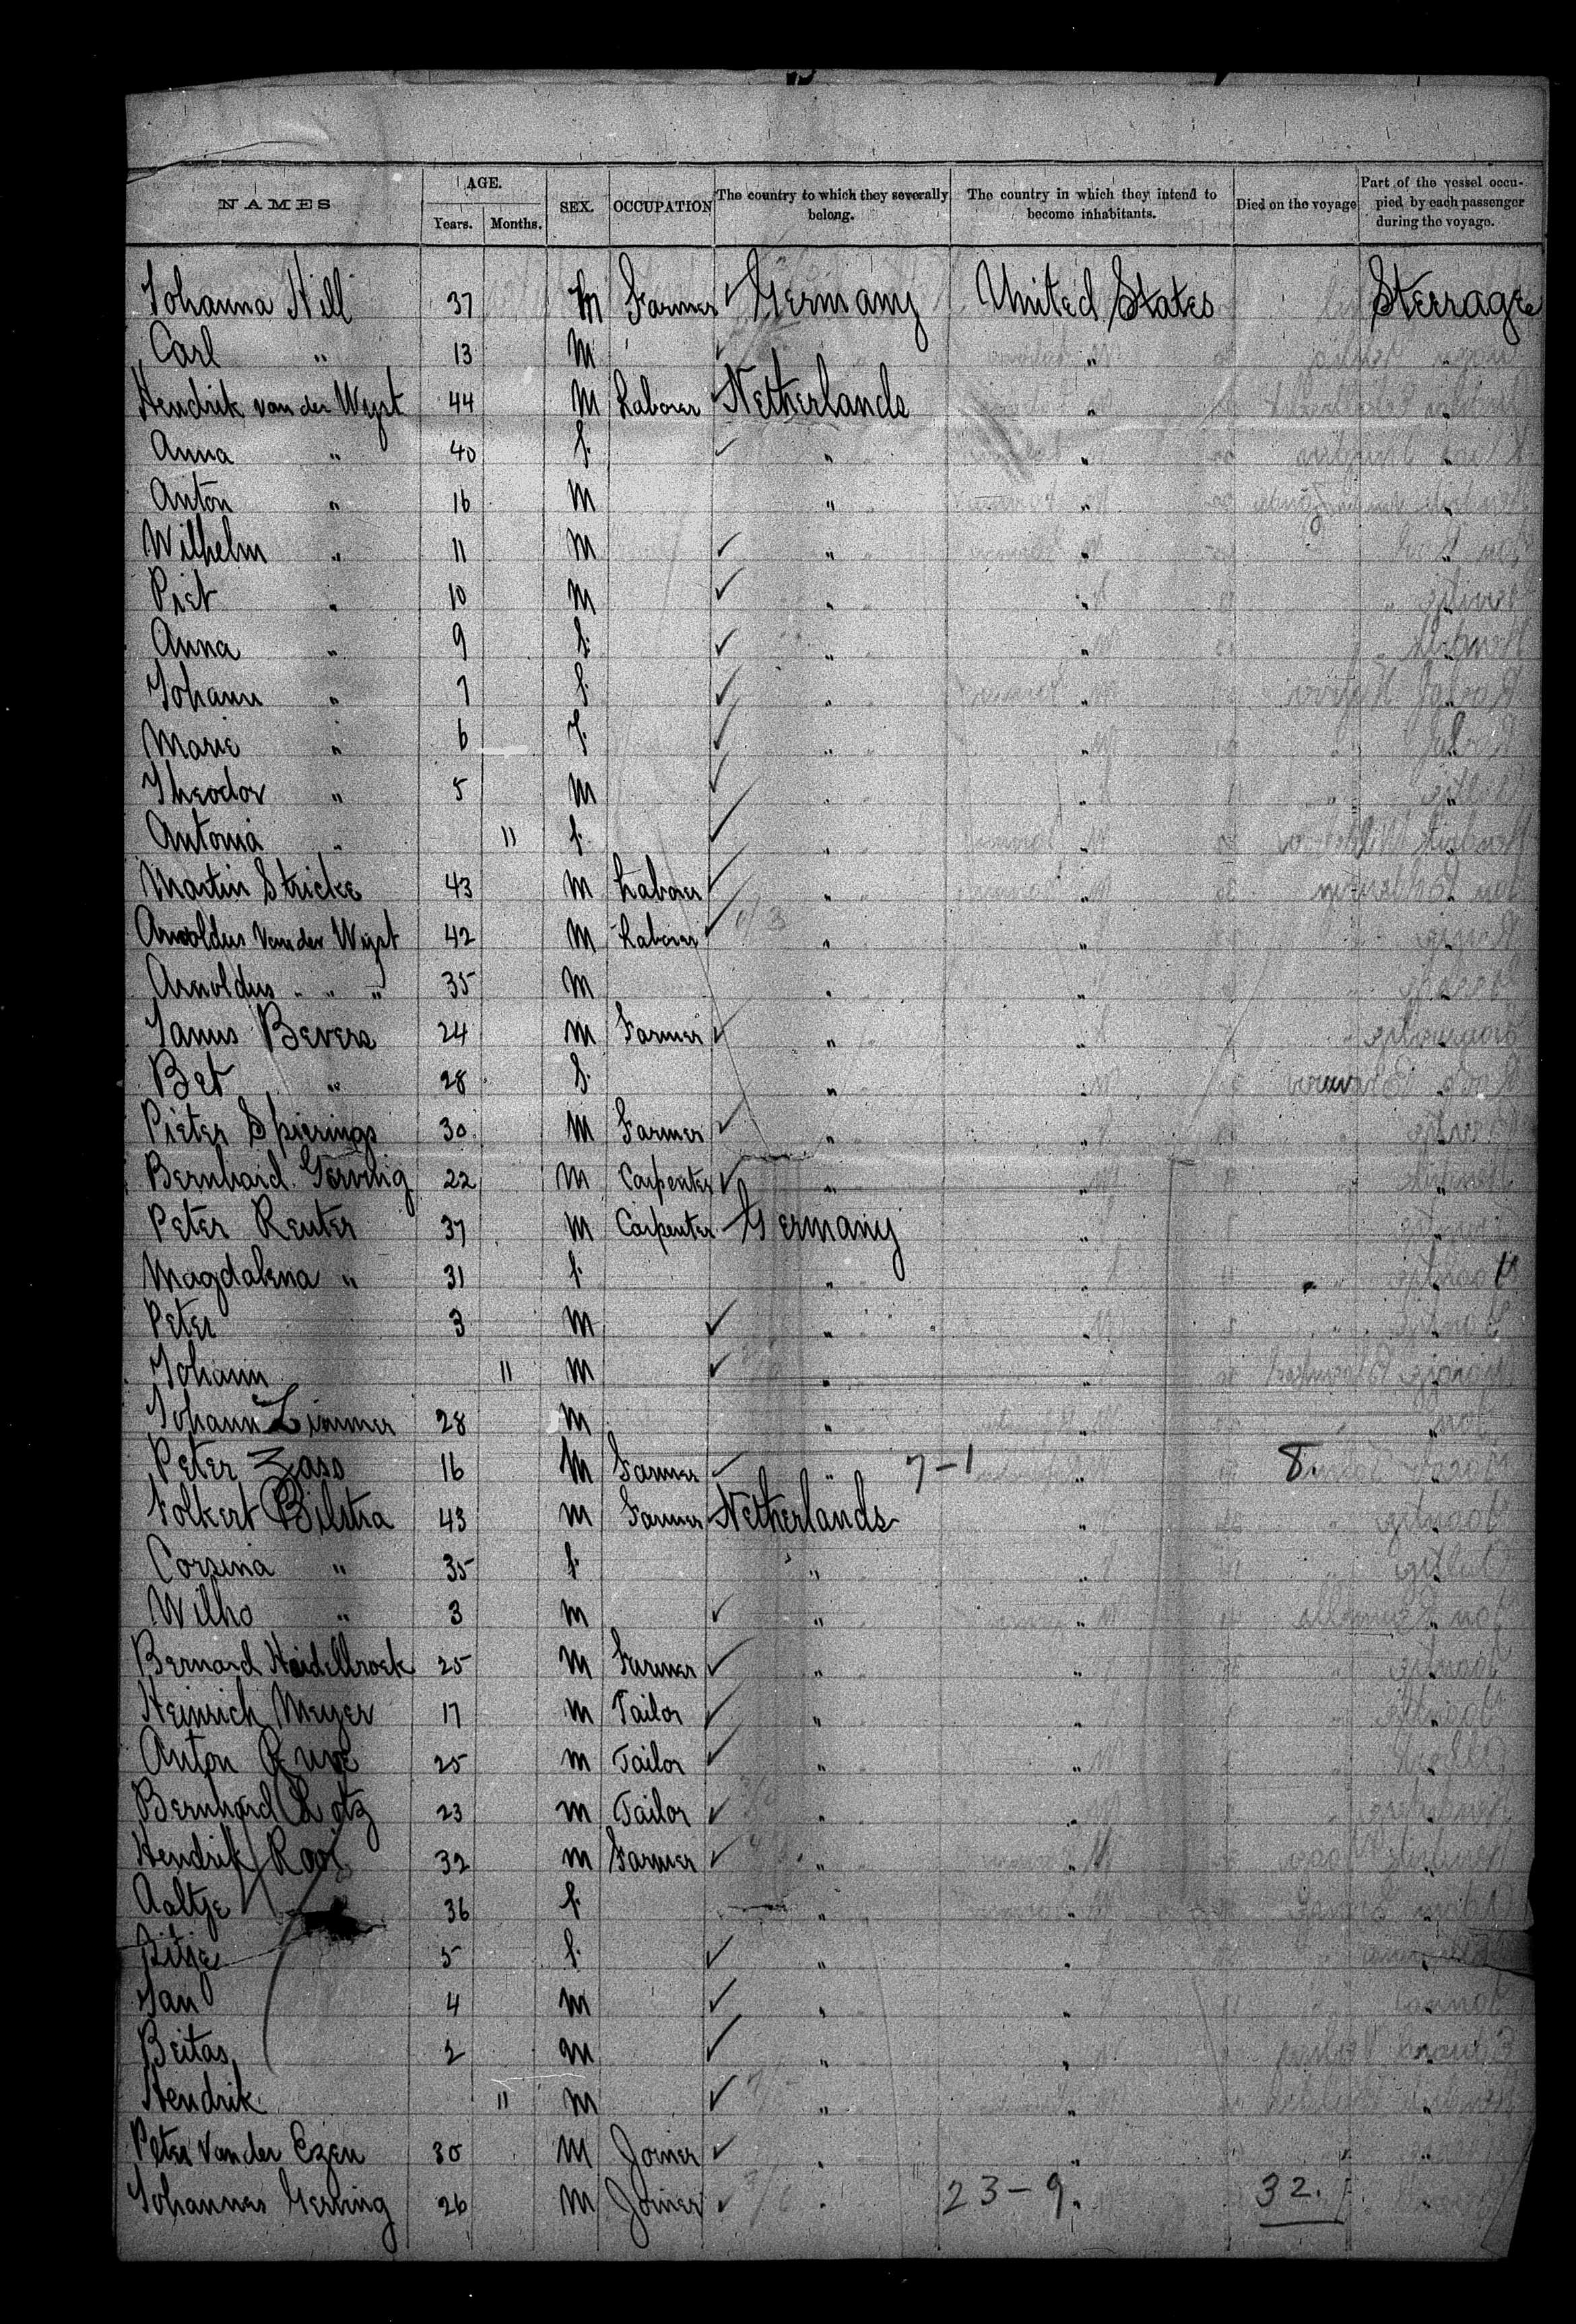 NAMES AGE. Years. Months. SEX. OCCUPATION The country to which they severally belong. The country in which they intend to become inhabitants. Died on the voyage Part of the vessel occupied by each passenger during the voyage.
Johanna Hill 37 M Farmer Germany United States Steerage
Carl " 13 M "
Hendrik van der Weyst 44 M Laborer Netherlands "
Anna " 40 f. " "
Anton " 16 M " "
Wilhelm " 11 M " "
Piet " 10 M " "
Anna " 9 f. " "
Johann " 7 f. " "
Marie " 6 f. " "
Theodor " 5 M " "
Antonia " 11 f. " "
Martin Stricke 43 M Laborer " "
Arnoldus Van der Weyst 42 M Laborer " "
Arnoldus " " " 35 M " "
Janus Bevers 24 M Farmer " "
Bet " 28 f. " "
Pieter Spierings 30 M Farmer " "
Bernhard Gerving 22 M Carpenter " "
Peter Reuter 37 M Carpenter Germany "
Magdalena " 31 f. " "
Peter 3 M " "
Johann 11 M " "
Johann Zimmer 28 M " "
Peter Zass 16 M Farmer " 7-1 " 8.
Folkert Bilstra 43 M Farmer Netherlands "
Corsina " 35 f. " "
Wilho " 3 M " "
Bernard Heidelbroek 25 M Farmer " "
Heinrich Meyer 17 M Tailor " "
Anton Ruwe 25 M Tailor " "
Bernhard Lotz 23 M Tailor " "
Hendrik Rooi 32 M Farmer " "
Aaltje 36 f. " "
5 f. " "
Jan 4 M " "
Beitas 2 M " "
Hendrik 11 M " "
Peter Van der Ezen 30 M Joiner " "
Johannes Gerving 26 M Joiner " 23-9. 32.